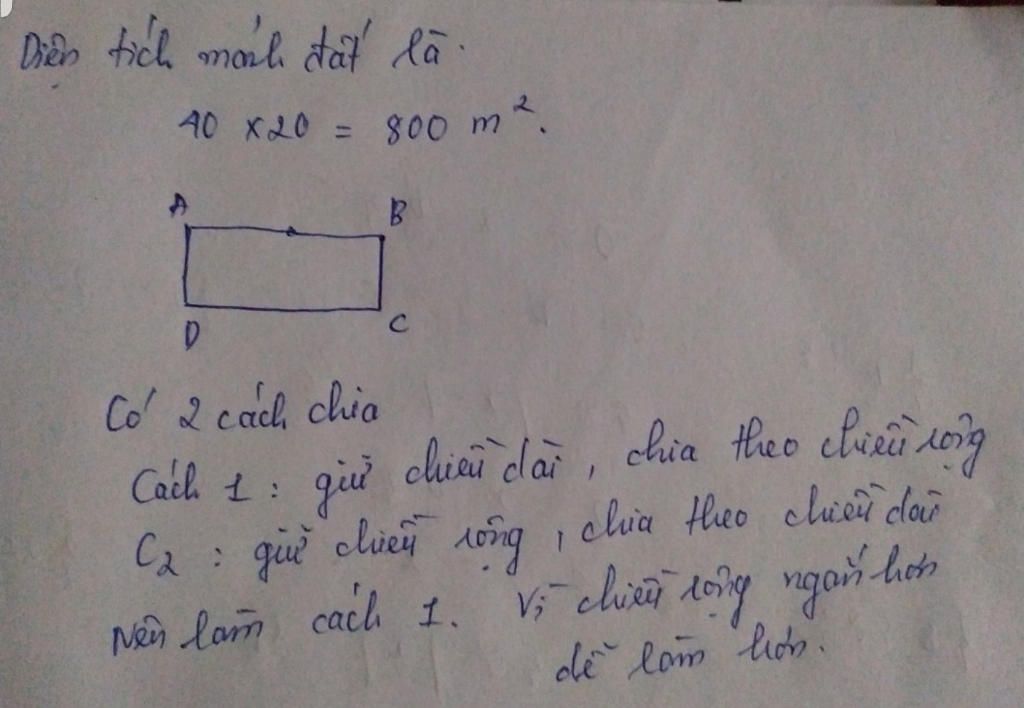 Diện tích mảnh đất là.
40 x 20 = 800 m².
A
B
D
C
Có 2 cách chia
Cách 1 : giữ chiều dài, chia theo chiều rộng
C₂ : giữ chiều rộng, chia theo chiều dài
Nên làm cách 1. Vì chiều rộng ngắn hơn
dễ làm hơn.